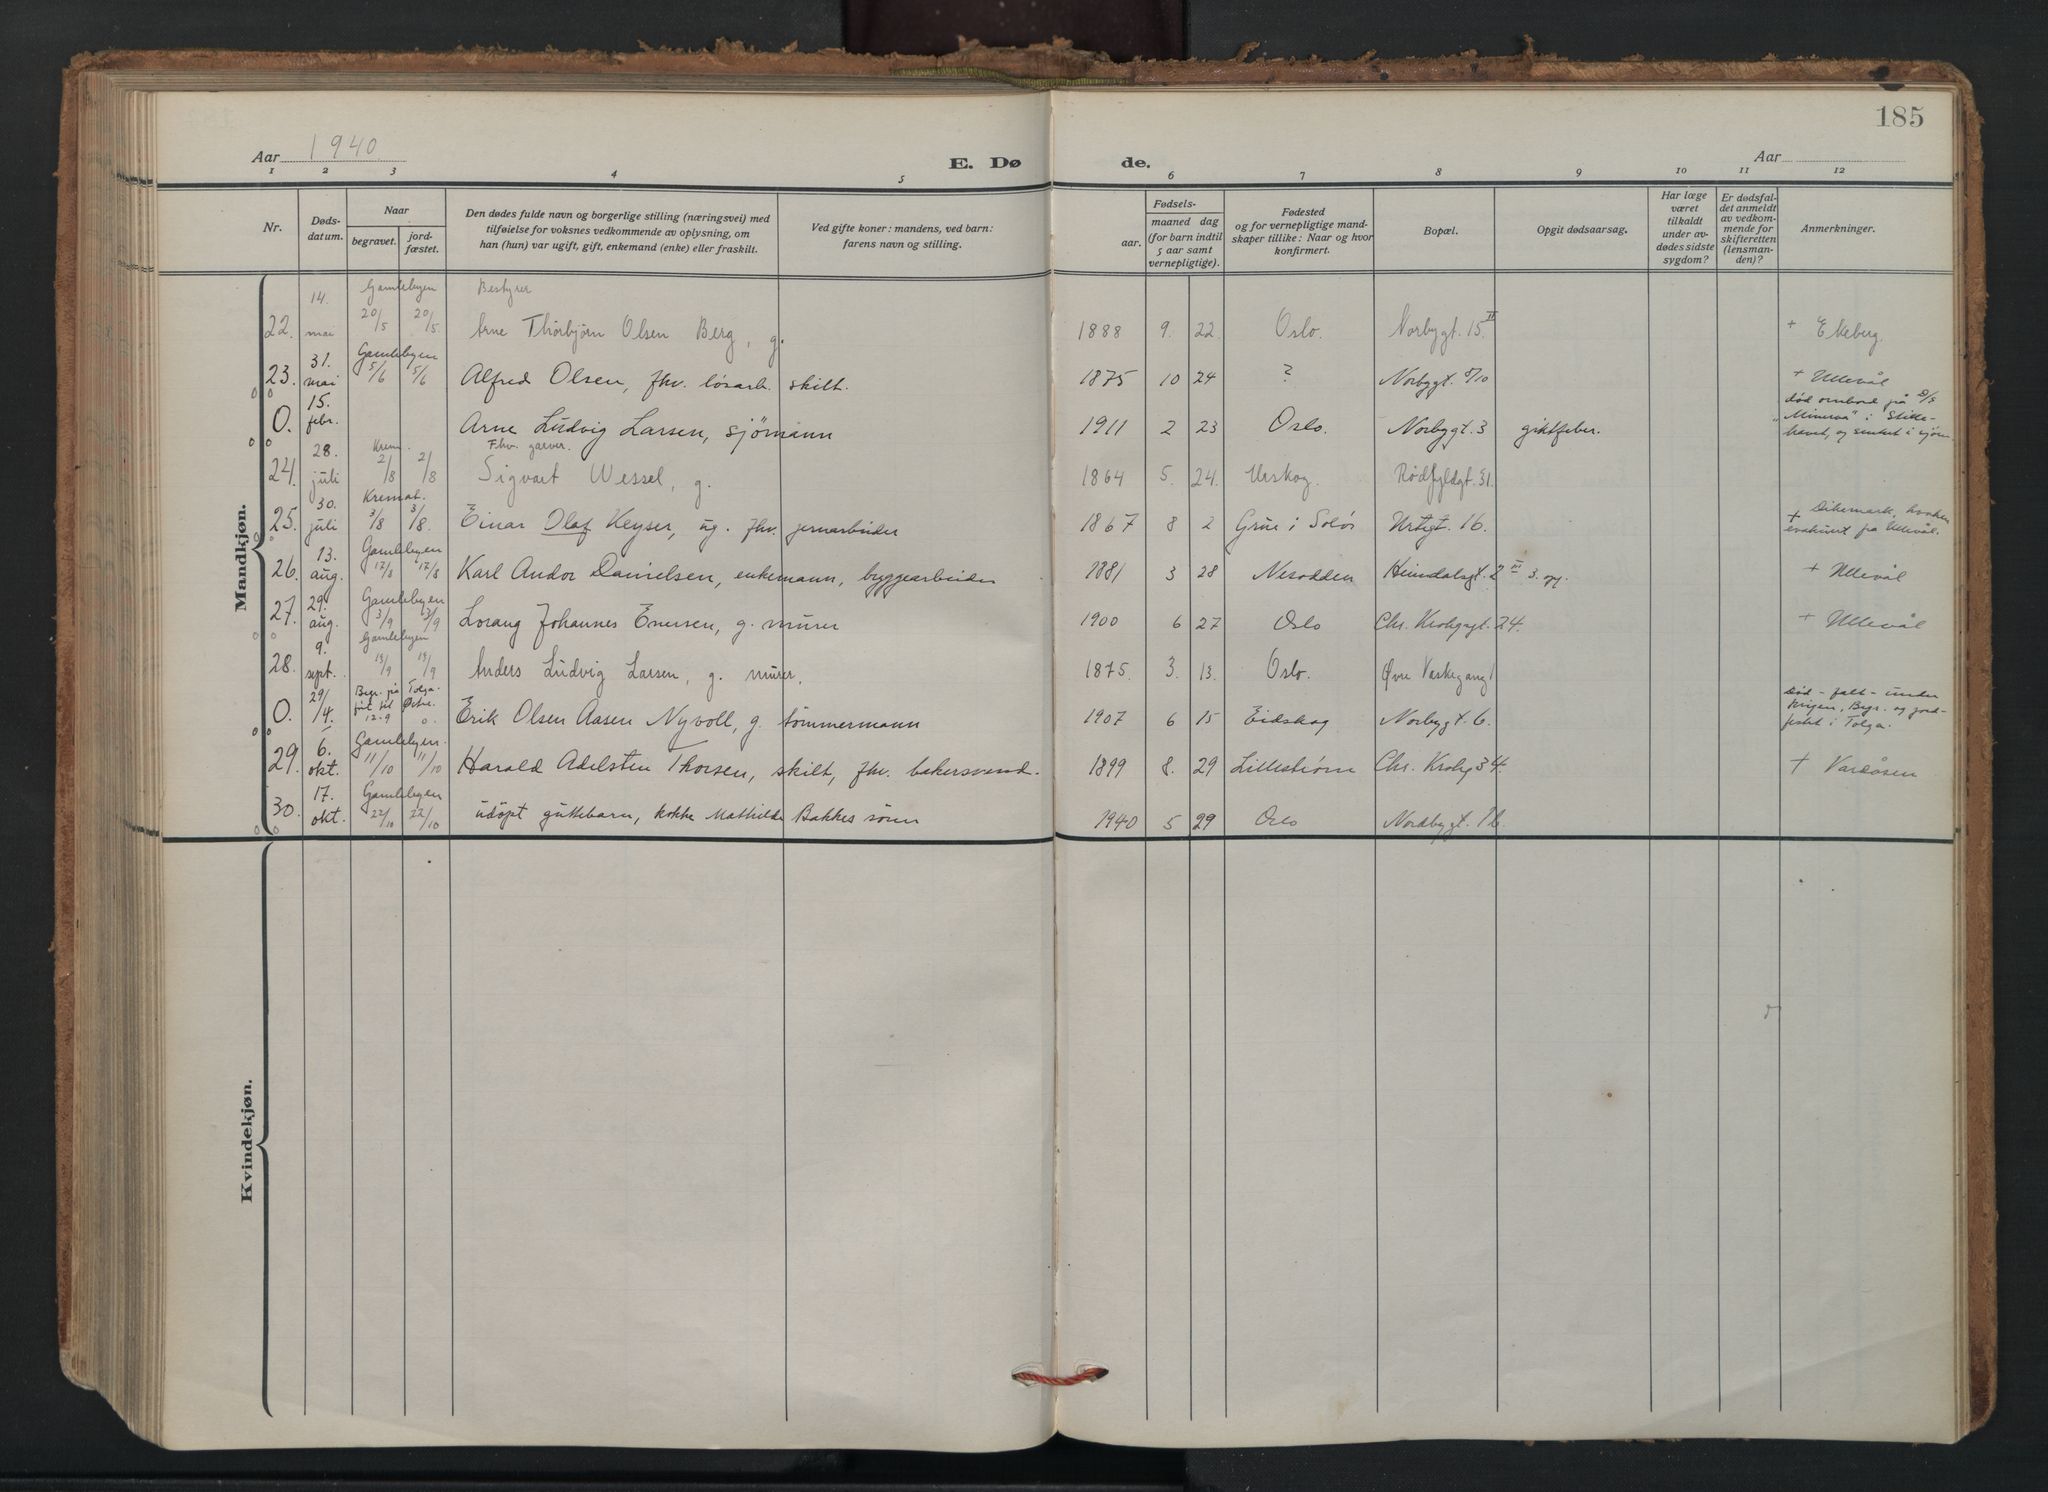 185
Aar 1940
E. Dø
de.
Aar
1 2 3 4 5 6 7 8 9 10 11 12
Nr.
Døds-
datum.
Naar
begravet.
jord-
fæstet.
Den dødes fulde navn og borgerlige stilling (næringsvei) med
tilføielse for voksnes vedkommende av oplysning, om
han (hun) var ugift, gift, enkemand (enke) eller fraskilt.
Ved gifte koner: mandens, ved barn:
farens navn og stilling.
Fødsels-
aar.
maaned dag
(for barn indtil
5 aar samt
vernepligtige).
Fødested
og for vernepligtige mand-
skaper tillike: Naar og hvor
konfirmert.
Bopæl.
Opgit dødsaarsag.
Har læge
været
tilkaldt
under av-
dødes sidste
sygdom?
Er dødsfal-
det anmeldt
av vedkom-
mende for
skifteretten
(lensman-
den)?
Anmerkninger.
Mandkjøn.
14. Gamlebyen Bestyrer
22. mai 20/5 20/5 Arne Thorbjørn Olsen Berg, g. 1888 9. 22. Oslo. Norbygt. 15 II + Ekeberg.
31. Gamlebyen
23. mai 5/6 5/6 Alfred Olsen, fhv. løsarb. skilt. 1875 10 24 ? Norbygt. 8/10 + Ullevål
15. død ombord på D/S
0. febr. Arne Ludvig Larsen, sjömann 1911 2 23 Oslo. Norbygt. 3 giktfeber. "Minerva" i Stille-
havet, og senket i sjøen.
28. Krem. Fhv. garver.
24. juli 2/8 2/8 Sigvart Wessel, g. 1864 5. 24. Urskog. Rødfyldgt. 31.
30. Kremat.
25. juli 3/8 3/8. Einar Olaf Keyser, ug. fhv. jernarbeider 1867 8 2 Grue i Solør Urtegt. 16. + Dikemark, hvorhen
evakuert fra Ullevål.
13. Gamlebyen
26. aug. 17/8 17/8 Karl Andor Danielsen, enkemann, byggearbeider 1881 3 28 Nesodden Heimdalsgt. 2 III 3. opg. + Ullevål
29. Gamlebyen
27. aug. 3/9 3/9 Lorang Johannes Enersen, g. murer 1900 6 27 Oslo Chr. Krohgsgt. 24. + Ullevål
9. Gamlebyen
28. sept. 13/9 13/9 Anders Ludvig Larsen, g. murer. 1875. 3. 13. Oslo. Øvre Vaskegang 1
29/4. Begr. på Tolga.
0. 12-9 Erik Olsen Aasen Nyvoll, g. tömmermann 1907 6 15 Eidskog Norbygt. 6. Död - falt - under
krigen, Begr. og jord-
festet i Tolga.
6. Gamlebyen.
29. okt. 11/10 11/10 Harald Adelsten Thorsen, skilt, fhv. bakersvend. 1899 8. 29 Lillestrøm Chr. Krohg 34. + Vardåsen
17. Gamlebyen
30. okt. 22/10 22/10 udöpt guttebarn, kokke Mathilde Bakkes sönn 1940 5 29 Oslo Nordbygt. 16.
Kvindekjøn.